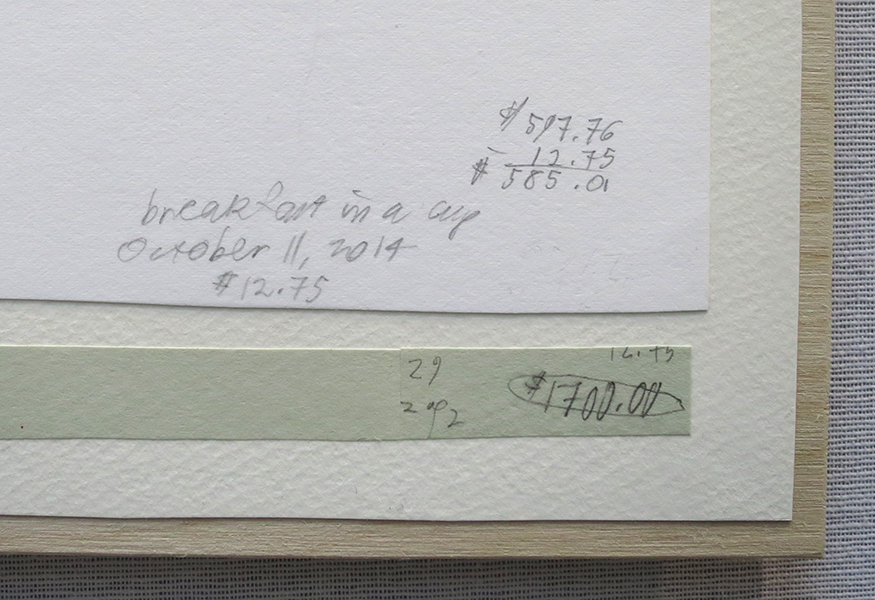 $ 597.76
- 12.75
$ 585.01
breakfast in a cup
October 11, 2014
$12.75
12.75
29
$1700.00
2 of 2